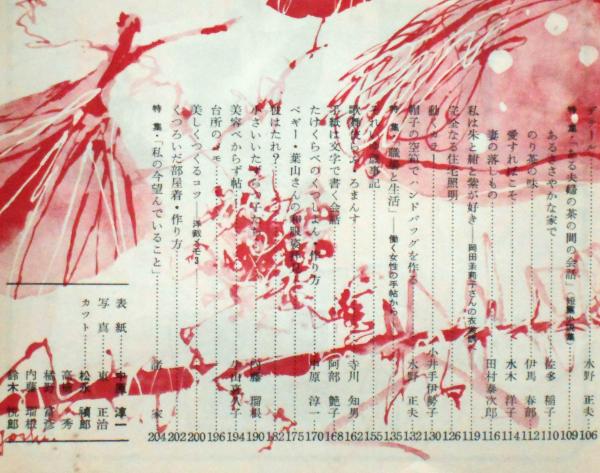 水野 正夫 106
特集・「ある夫婦の茶の間の会話」 短篇小説集 109
あるささやかな家で 佐多 稲子 110
のり茶の味 伊馬 春部 112
愛すればこそ 水木 洋子 114
妻の落しもの 田村 泰次郎 116
私は朱と紺と紫が好き——岡田茉莉子さんの衣裳 119
完全なる住宅照明 126
動くカラー 小井手伊勢子 130
帽子の空箱でハンドバッグを作る 水野 正夫 132
特集・「職業と生活」——働く女性の手帖から—— 135
歳事記 155
ろまんす 寺川 知男 162
手紙は文字で書く会話 阿部 艶子 168
たけくらべのくつしょん・作り方 中原 淳一 170
ペギー・葉山さんの和服姿拝見 175
誰はたれ? 182
小さいいたずらっ子たち 内藤 瑠根 190
美容べからず帖 194
台所のメモ 196
美しくつくるコツ 洋裁メモ3 200
くつろいだ部屋着・作り方 202
特集・「私の今望んでいること」 諸家 204
表紙 中原 淳一
写真 東 正治
カット 松本 禎郎
高橋 秀
橘野 富彦
内藤 瑠根
鈴木 悦郎